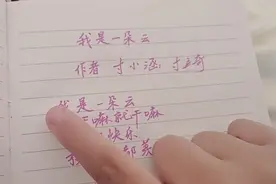 我是一朵云
作者 寸小涵 寸
我是一朵云
嘛就干嘛
快乐
邹美